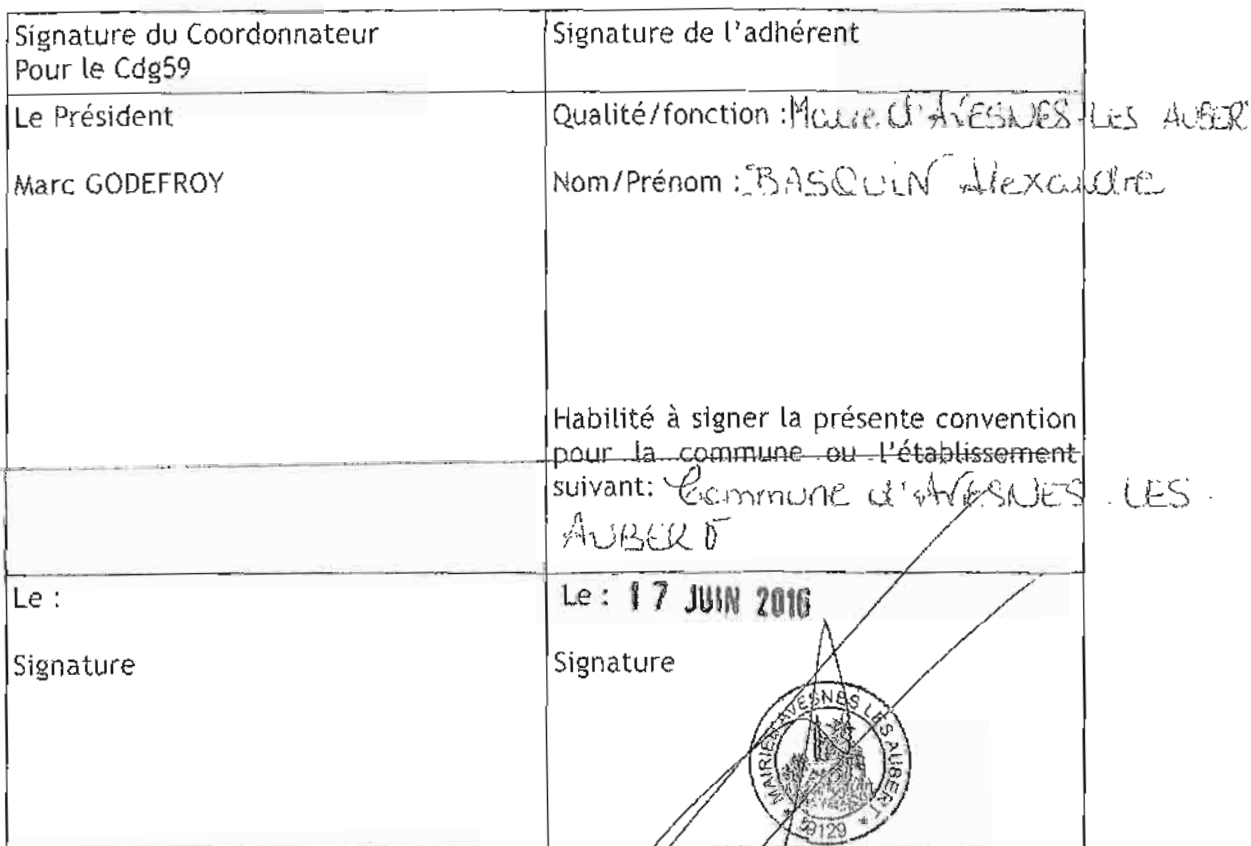 Signature du Coordonnateur
Pour le Cdg59
Signature de l'adhérent
Le Président
Marc GODEFROY
Qualité/fonction : Maire d'AVESNES-LES AUBERT
Nom/Prénom : BASQUIN Alexandre
Habilité à signer la présente convention
pour la commune ou l'établissement
suivant: Commune d'AVESNES-LES-
AUBERT
Le :
Signature
Le : 17 JUIN 2016
Signature
MAIRIE D'AVESNES LES AUBERT
* 59129 *